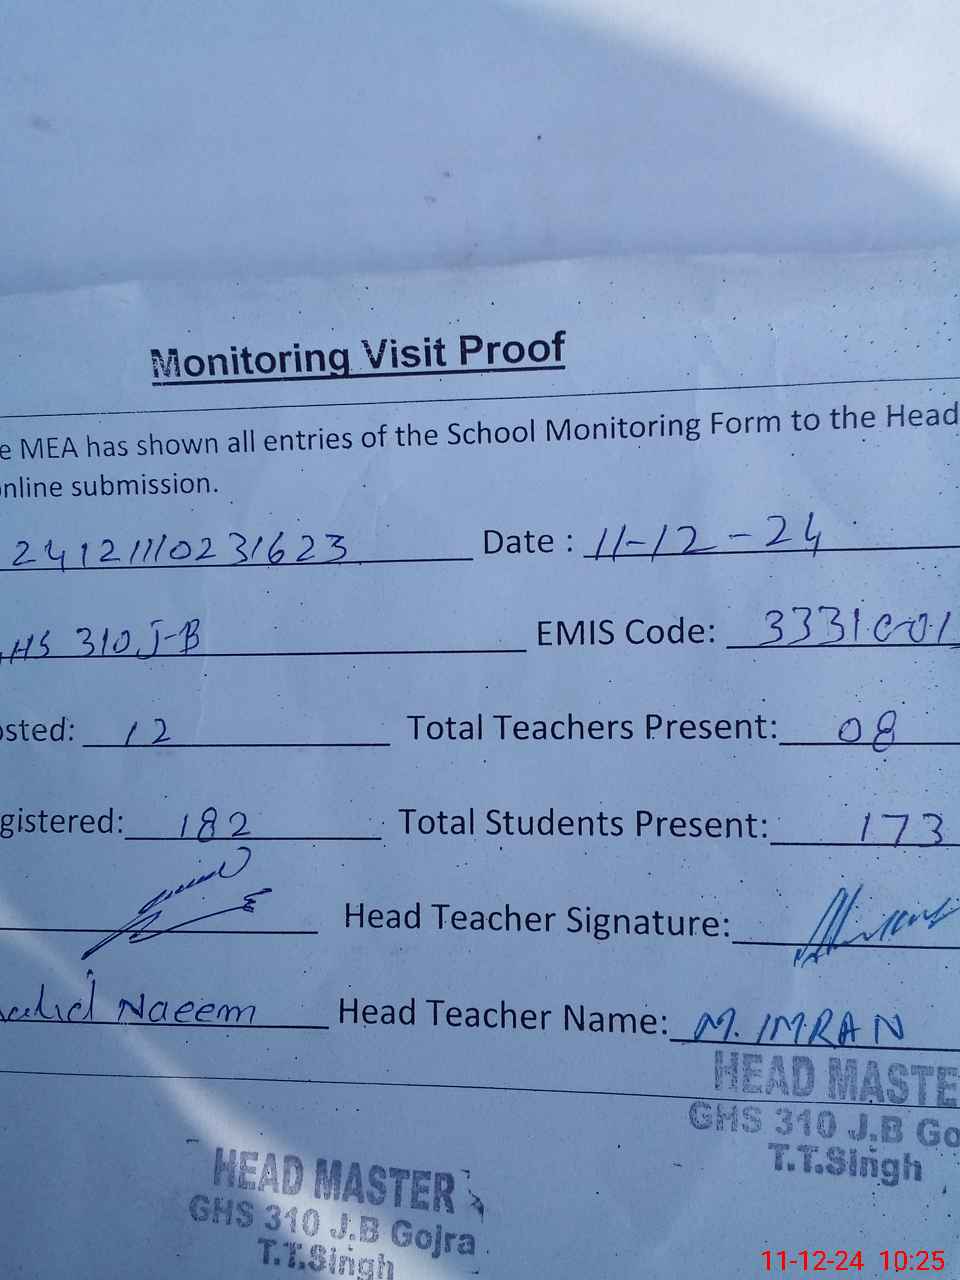 Monitoring Visit Proof
e MEA has shown all entries of the School Monitoring Form to the Head
nline submission.
24121110231623 Date : 11-12-24
HS 310 J-B EMIS Code: 3331001
osted: 12 Total Teachers Present: 08
gistered: 182 Total Students Present: 173
Head Teacher Signature:
Naeem Head Teacher Name: M. IMRAN
HEAD MASTE
GHS 310 J.B Go
T.T.Singh
HEAD MASTER
GHS 310 J.B Gojra
T.T.Singh
11-12-24 10:25